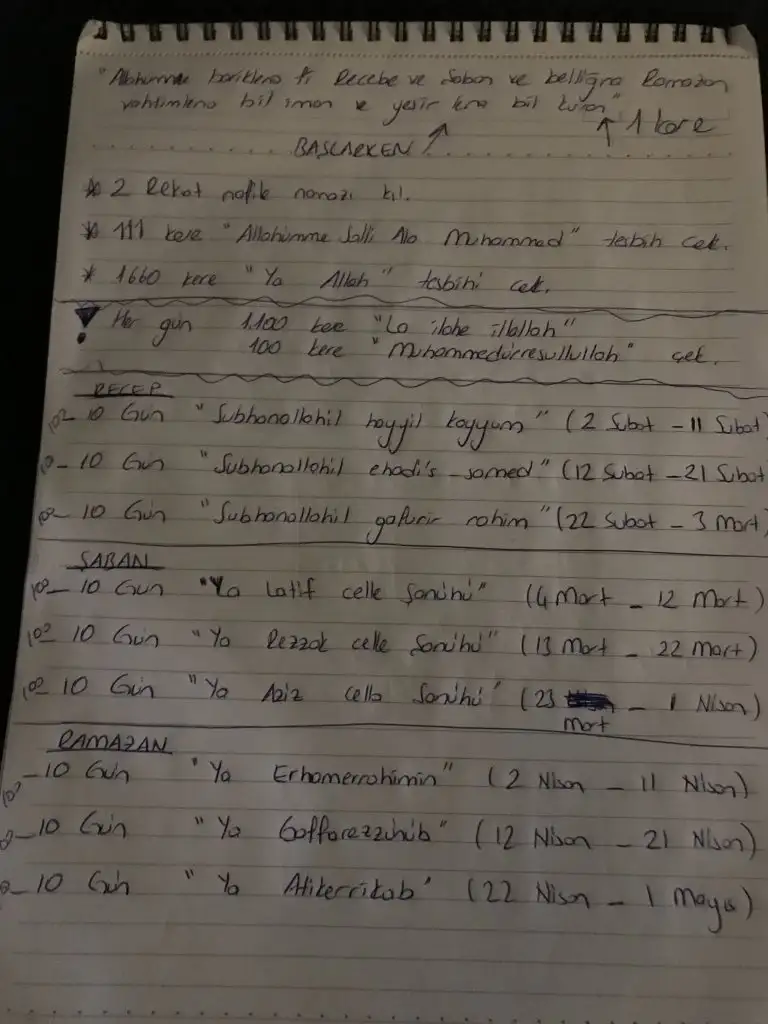 "Allahumme bariklena fi Recebe ve Şaban ve belliğna Ramazan
vahtimlena bil iman ve yessir lena bil kuran"
↑ 1 kere
BAŞLARKEN ↑
* 2 Rekat nafile namazı kıl.
* 111 kere "Allahümme Salli Ala Muhammed" tesbih çek.
* 1660 kere "Ya Allah" tesbihi çek.
Her gün 1.100 kere "La ilahe illallah"
100 kere "Muhammedürresullullah" çek.
RECEP
100 - 10 Gün "Subhanallahil hayyil kayyum" (2 Şubat - 11 Şubat)
100 - 10 Gün "Subhanallahil ehadi's-samed" (12 Şubat - 21 Şubat
100 - 10 Gün "Subhanallahil gafurir rahim" (22 Şubat - 3 Mart)
ŞABAN
100 - 10 Gün "Ya Latif celle Şanühü" (4 Mart - 12 Mart)
100 - 10 Gün "Ya Rezzak celle Şanühü" (13 Mart - 22 Mart)
100 - 10 Gün "Ya Aziz celle Şanühü" (23 Mart - 1 Nisan)
RAMAZAN
100 - 10 Gün "Ya Erhamerrahimin" (2 Nisan - 11 Nisan)
- 10 Gün "Ya Gaffarezzünüb" (12 Nisan - 21 Nisan)
- 10 Gün "Ya Atikerrikab" (22 Nisan - 1 Mayıs)